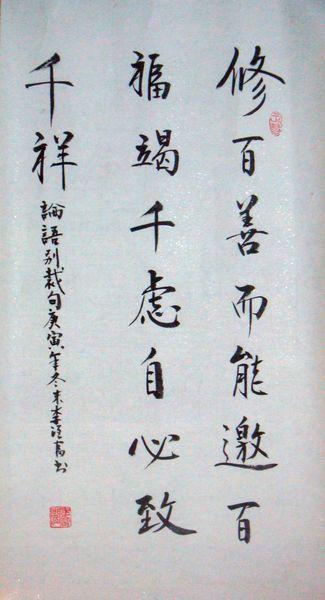 修百善而能邀百
福竭千虑自必致
千祥
論語别裁句庚寅年冬末李